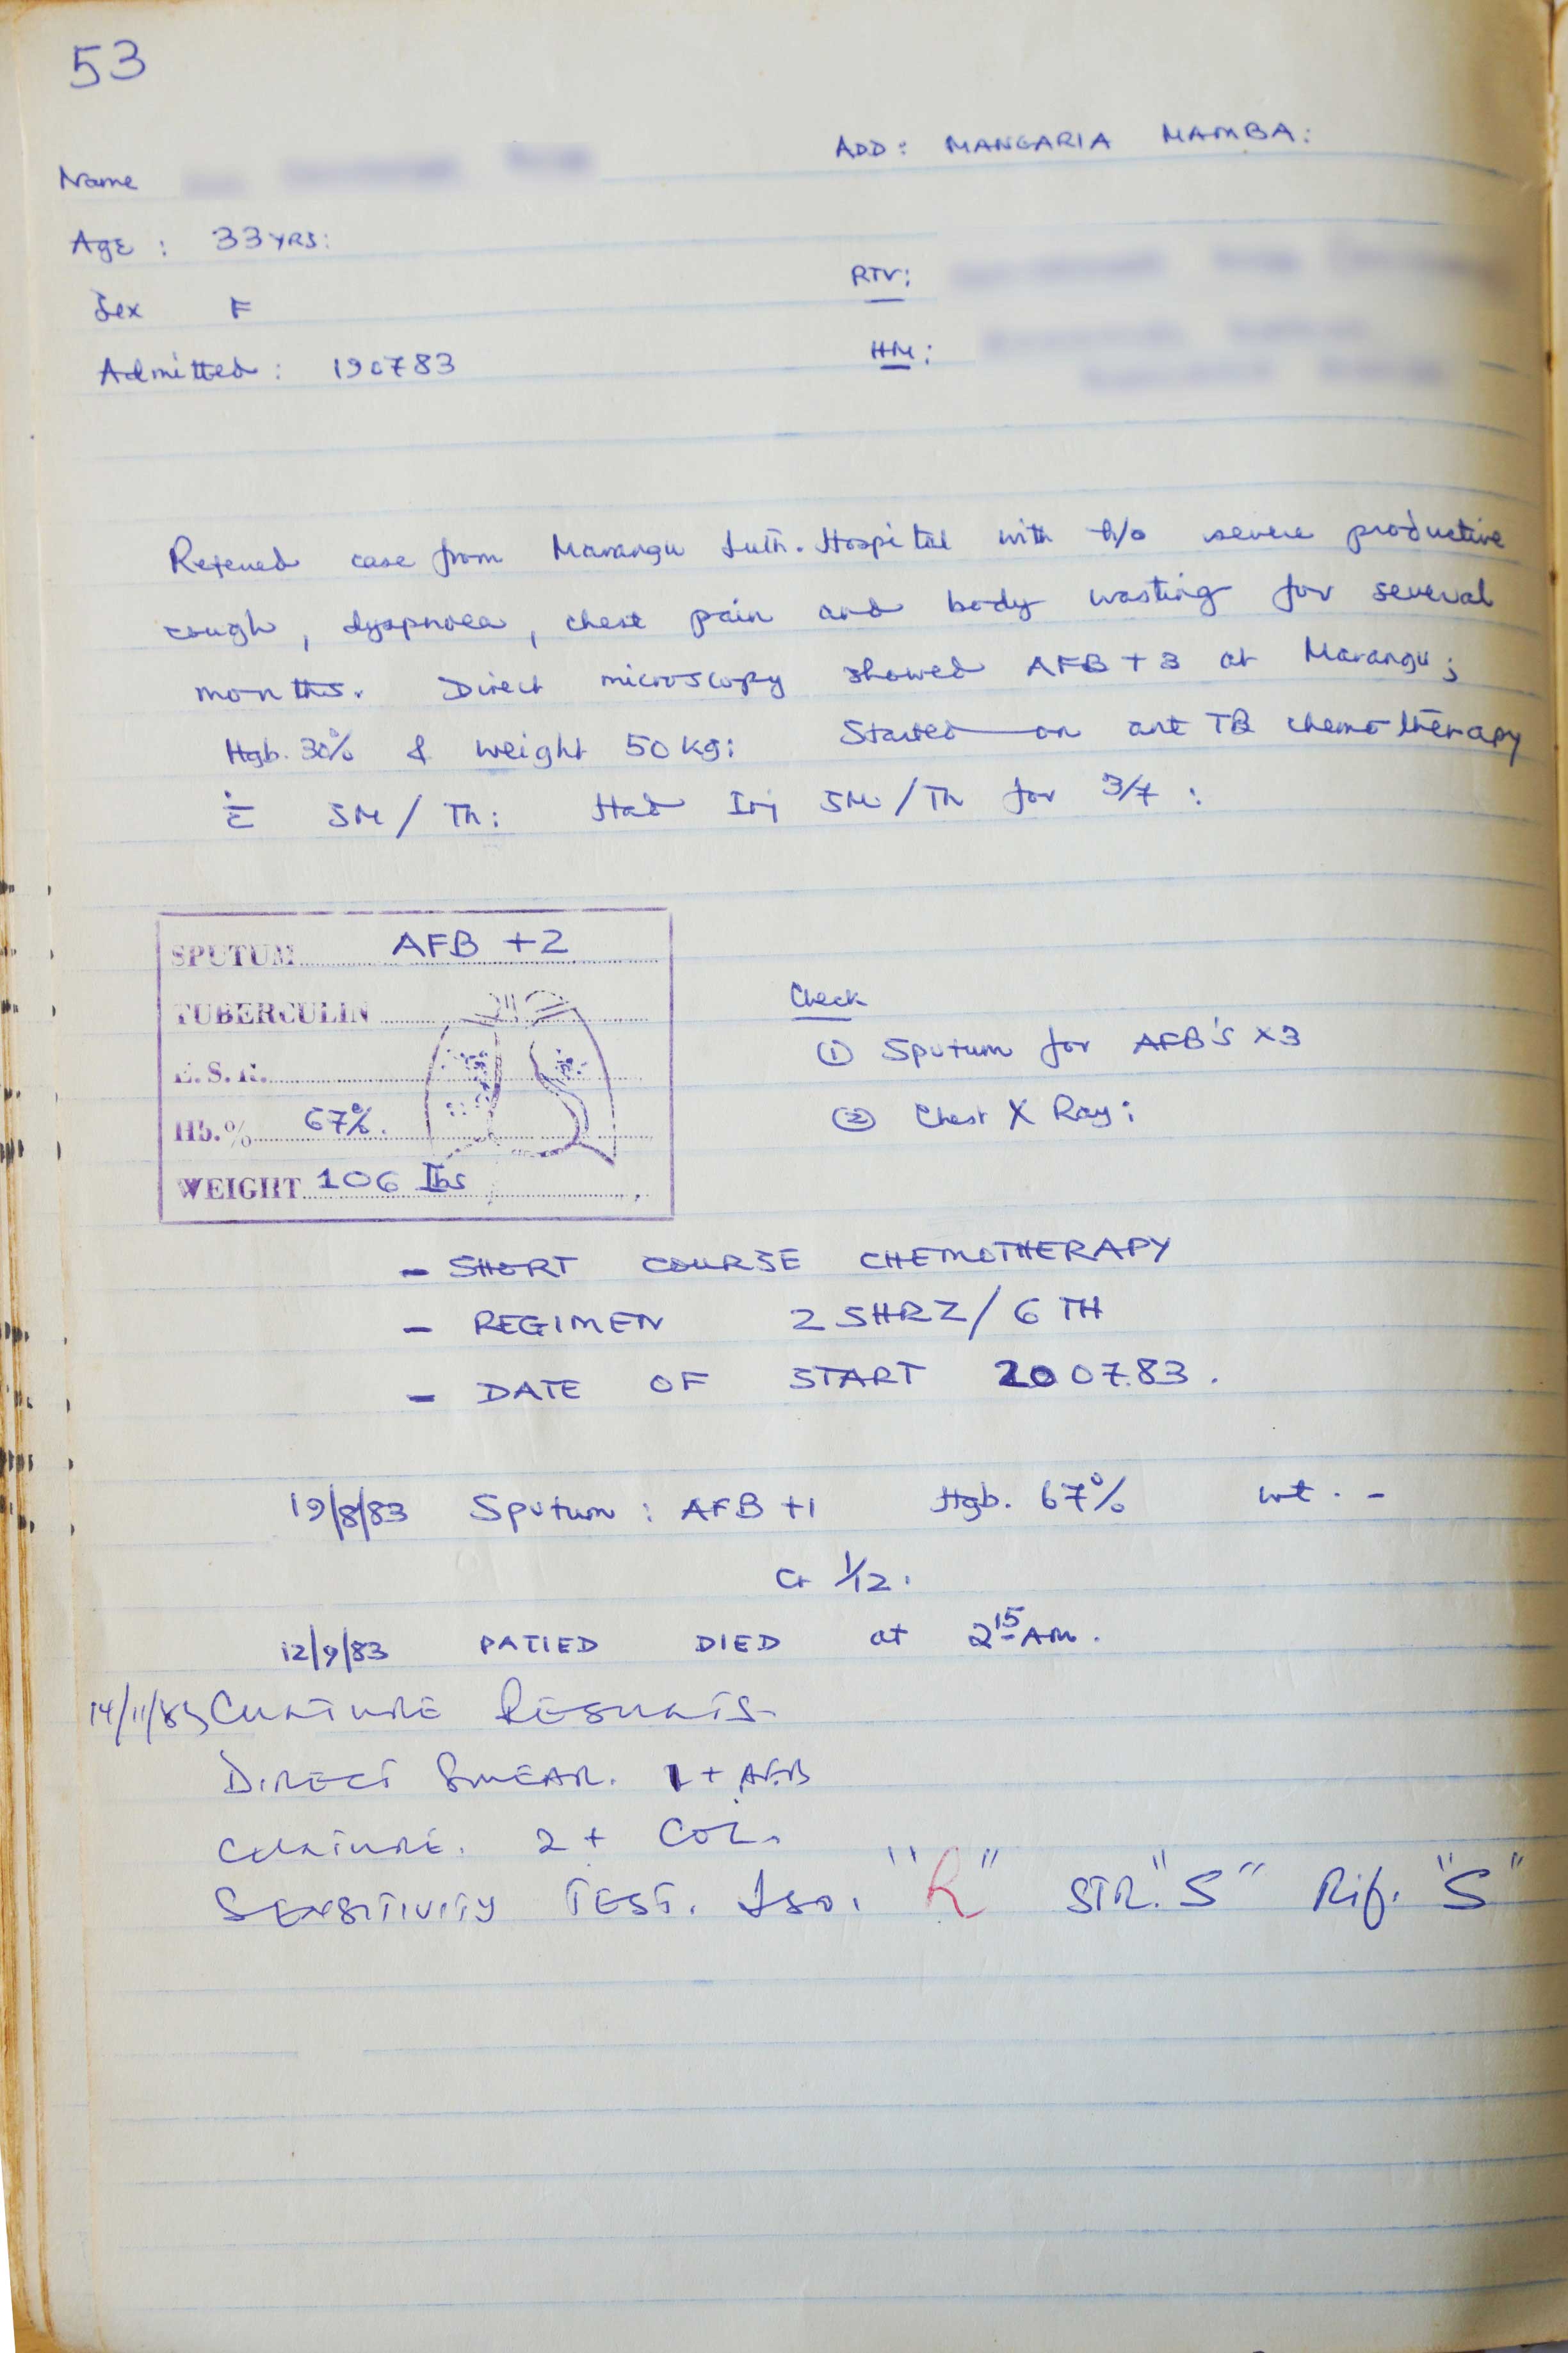 53
ADD: MANGARIA MAMBA:
Name
Age: 33 YRS:
RTV:
Sex F
HM:
Admitted: 190783
Refered case from Marangu Luth. Hospital with h/o severe productive
cough, dyspnoea, chest pain and body wasting for several
months. Direct microscopy showed AFB +3 at Marangu;
Hgb. 30% & weight 50 kg: Started on ant TB chemotherapy
c̄ SM/Th: Had Inj SM/Th for 3/7:
SPUTUM AFB +2
TUBERCULIN
E.S.R.
Hb.% 67%.
WEIGHT 106 lbs
Check
① Sputum for AFB'S X3
② Chest X Ray:
- SHORT COURSE CHEMOTHERAPY
- REGIMEN 2 SHRZ/6 TH
- DATE OF START 200783.
19/8/83 Sputum: AFB +1 Hgb. 67% wt. -
Ct 1/12.
12/9/83 PATIED DIED at 2 15 AM.
14/11/83 CULTURE RESULTS
DIRECT SMEAR. 1+ AFB
CULTURE. 2+ COL.
SENSITIVITY TEST. Iso. "R" STR. "S" Rif. "S"